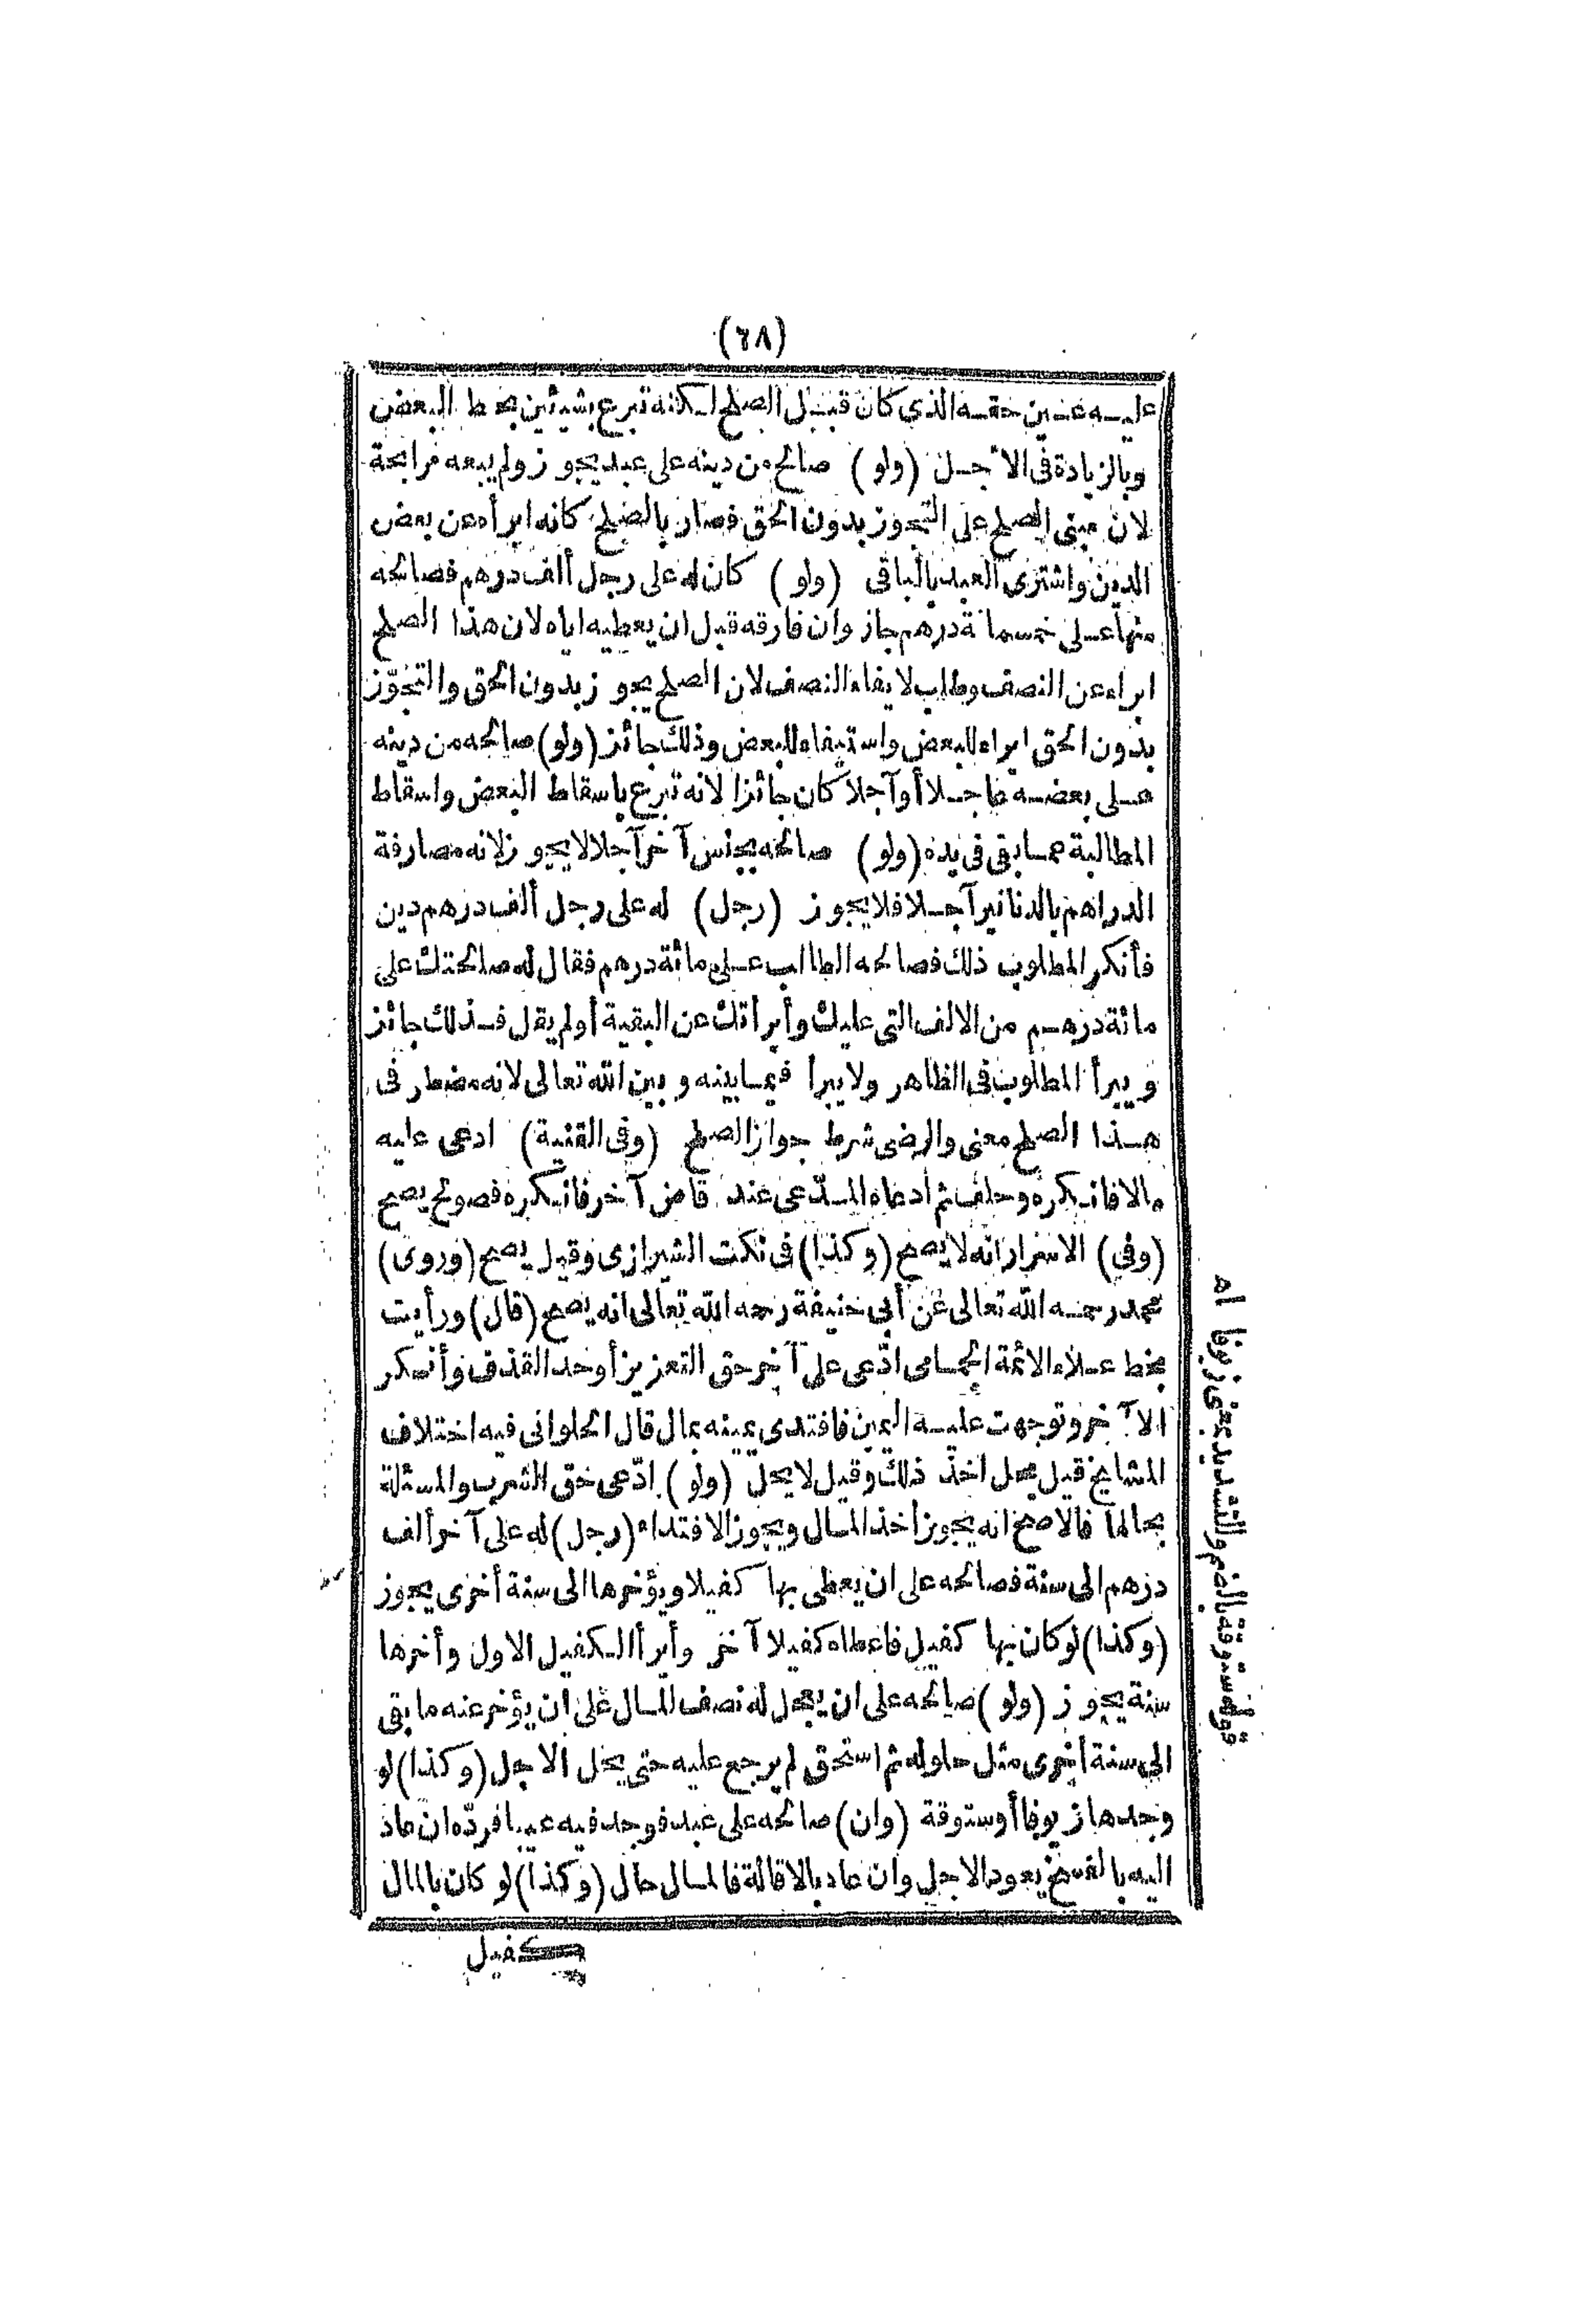 (٦٨)
عليه عين حقه الذي كان قبل الصلح لكنه تبرع بشيئين بحط البعض
وبالزيادة في الاجل (ولو) صالح من دينه على عبد يجوز ولم يبعه مرابحة
لان مبنى الصلح على التجوز بدون الحق فصار بالصلح كانه ابرأه عن بعض
الدين واشترى العبد بالباقى (ولو) كان له على رجل ألف درهم فصالحه
منها على خمسمائة درهم جاز وان فارقه قبل ان يعطيه اياه لان هذا الصلح
ابراء عن النصف وطلب لايفاء النصف لان الصلح يجوز بدون الحق والتجوّز
بدون الحق ابراء للبعض واستيفاء للبعض وذلك جائز (ولو) صالحه من دينه
على بعضه عاجلا أو آجلا كان جائزا لانه تبرع باسقاط البعض واسقاط
المطالبة عما بقى فى يده (ولو) صالحه بجنس آخر آجلا لا يجوز لانه مصارفة
الدراهم بالدنانير آجلا فلا يجوز (رجل) له على رجل ألف درهم دين
فأنكر المطلوب ذلك فصالحه الطالب على مائة درهم فقال له صالحتك على
مائة درهم من الالف التى عليك وأبرأتك عن البقية أو لم يقل فذلك جائز
ويبرأ المطلوب فى الظاهر ولا يبرا فيما بينه وبين الله تعالى لانه مضطر فى
هذا الصلح معنى والرضى شرط جواز الصلح (وفى القنية) ادعى عليه
مالا فانكره وحلف ثم ادعاه المدّعى عند قاض آخر فانكره فصولح يصح
(وفي) الاسرار انه لا يصح (وكذا) فى نكت الشيرازى وقيل يصح (وروى)
محمد رحمه الله تعالى عن أبى حنيفة رحمه الله تعالى انه يصح (قال) ورأيت
بخط علاء الائمة الحمامى ادّعى على آخر حق التعزيز أو حد القذف وأنكر
الآخر وتوجهت عليه اليمين فافتدى يمينه بمال قال الحلوانى فيه اختلاف
المشايخ قيل يحل اخذ ذلك وقيل لا يحل (ولو) ادّعى حق الشرب والمسئلة
بحالها فالاصح انه يجوز اخذ المال ويجوز الافتداء (رجل) له على آخر ألف
درهم الى سنة فصالحه على ان يعطى بها كفيلا ويؤخرها الى سنة أخرى يجوز
(وكذا) لو كان بها كفيل فاعطاه كفيلا آخر وأبرأ الكفيل الاول وأخرها
سنة يجوز (ولو) صالحه على ان يعجل له نصف المال على أن يؤخر عنه ما بقى
الى سنة أخرى مثل حلوله ثم استحق لم يرجع عليه حتى يحل الاجل (وكذا) لو
وجدها زيوفا أو ستوقة (وان) صالحه على عبد فوجد فيه عيبا فردّه ان عاد
اليه بالفسخ يعود الاجل وان عاد بالاقالة فالمال حال (وكذا) لو كان بالمال
كفيل
قوله ستوقة بالضم والتشديد يعنى زيوفا اه